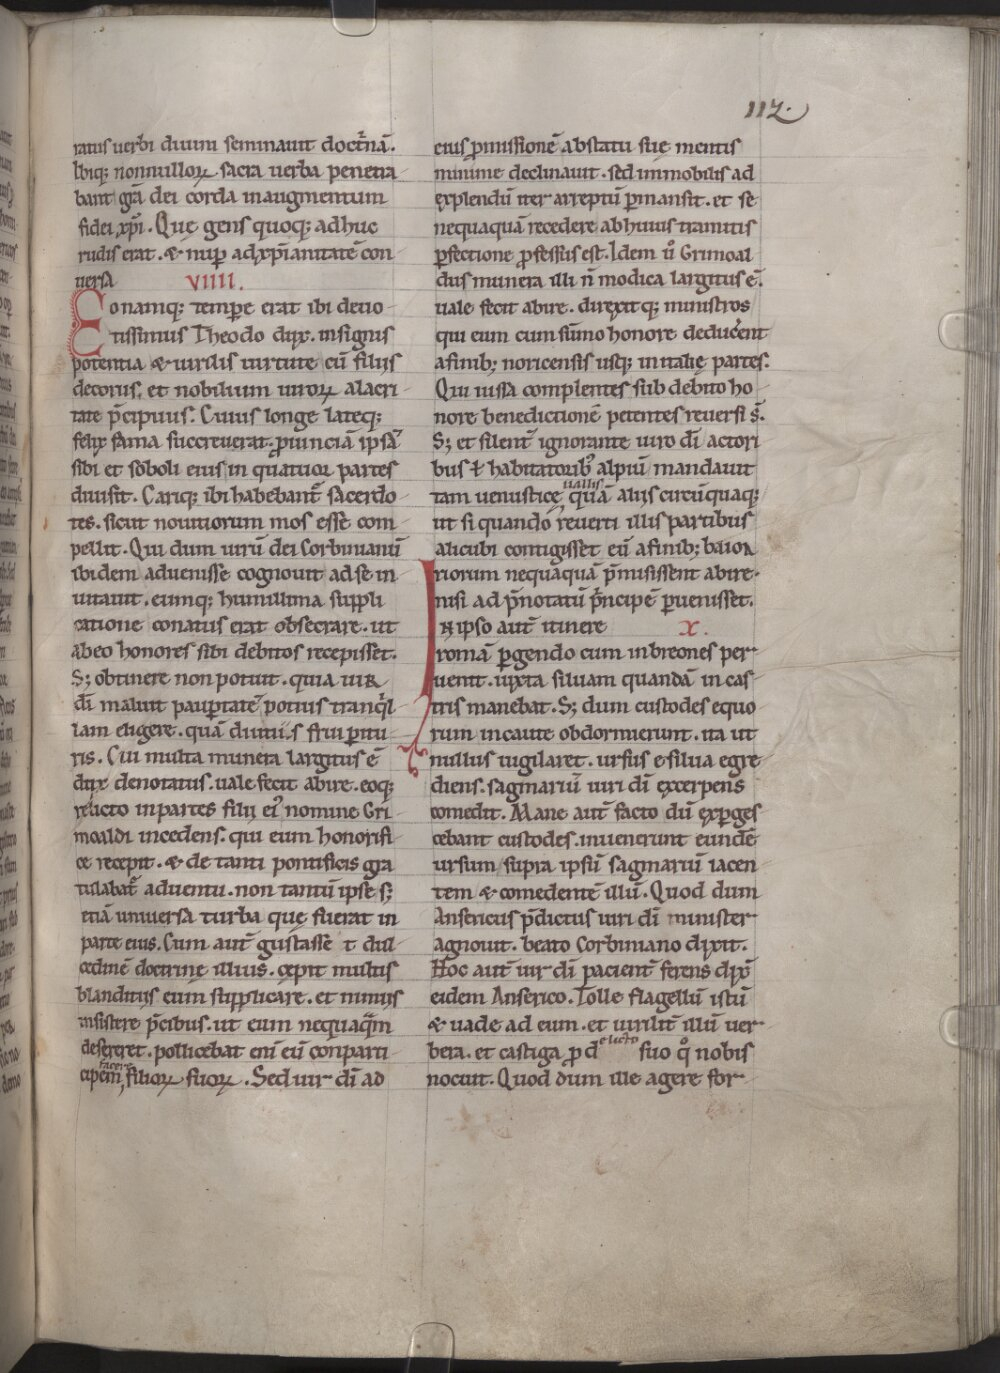 112.
ratus uerbi diuini seminauit doctͬnā.
Ibiq; nonnulloꝝ sacra uerba penetra
bant grā dei corda in augmentum
fidei xp̄i. Quę gens quoq; adhuc
rudis erat. & nup̄ ad xp̄ianitatē con
uersa VIIII.
Eo namq; tempore erat ibi deuo
tissimus Theodo dux. insignis
potentia & uirilis uirtute cū filijs
decorus. et nobilium uiroꝝ alacri
tate p̄cipuus. Cuius longe lateq;
felix fama succreuerat. ꝓuinciā ipsā
sibi et soboli eius in quatuor partes
diuisit. Cariq; ibi habebant̄ sacerdo
tes. sicut nouitiorum mos esse com
pellit. Qui dum uirū dei Corbinianū
ibidem aduenisse cognouit ad se in
uitauit. eumq; humillima suppli
catione conatus erat obsecrare. ut
ab eo honores sibi debitos recepisset.
S; obtinere non potuit. quia uir
dī maluit pauꝑtatē potius tranq̇l
lam eligere. quā diuitijs frui ꝑitu
ris. Cui multa munera largitus ē
dux denotatus. uale fecit abire. eoq;
relicto in partes filij ei' nomine Gri
moaldi incedens. qui eum honorifi
ce recepit. & de tanti pontificis gra
tulabat̄ aduentu. non tantū ipse s;
etiā uniuersa turba quę fuerat in
parte eius. Cum aut̄ gustasse t dul
cedinē doctrinę illius. cępit multis
blanditijs eum supplicare. et nimijs
insistere p̄cibus. ut eum nequaq̄m
desereret. pollicebat eni eū conparti
facere
cipem, filioꝝ suoꝝ. Sed uir dī ad
eius ꝓmissionē ab statu suę mentis
minime declinauit. sed immobilis ad
explendū iter arreptū ꝑmansit. et se
nequaquā recedere ab huius tramitis
ꝑfectione ꝓfessus est. Idem ū Grimoal
dus munera illi n̄ modica largitus ē.
uale fecit abire. direxitq; ministros
qui eum cum sūmo honore deducerent
a finib; noricensis usq; in italię partes.
Qui iussa complentes sub debito ho
nore benedictionē petentes reuersi s̄.
S; et silent̄ ignorante uiro dī actori
bus ł habitatorib' alpiū mandauit
uallis
tam uenusticę, quā alijs circūquaq;
ut si quando reuerti illis partibus
alicubi contigisset eū a finib; baioa
riorum nequaquā p̄misissent abire.
nisi ad p̄notatū p̄ncipē ꝑuenisset.
In ipso aut̄ itinere X.
romā ꝑgendo cum in breones per
uenit. iuxta siluam quandā in cas
tris manebat. S; dum custodes equo
rum incaute obdormierunt. ita ut
nullus uigilaret. ursus e silua egre
diens. sagmariū uiri dī excerpens
comedit. Mane aut̄ facto dū exꝑges
cebant custodes. inuenerunt eundē
ursum supra ipsū sagmariū iacen
tem & comedentē illū. Quod dum
Ansericus p̄dictus uiri dī minister
agnouit. beato Corbiniano dixit.
Hoc aut̄ uir dī pacient̄ ferens dix̄
eidem Anserico. Tolle flagellū istū
& uade ad eum. et uirilit̄ illū uer
bera. et castiga ꝓ delicto suo q̊ nobis
nocuit. Quod dum ille agere for